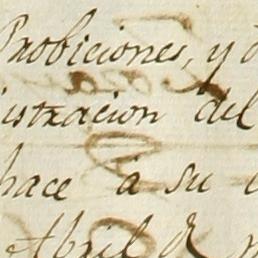 Probiciones, y d
istracion del
hace à su e
Abril de